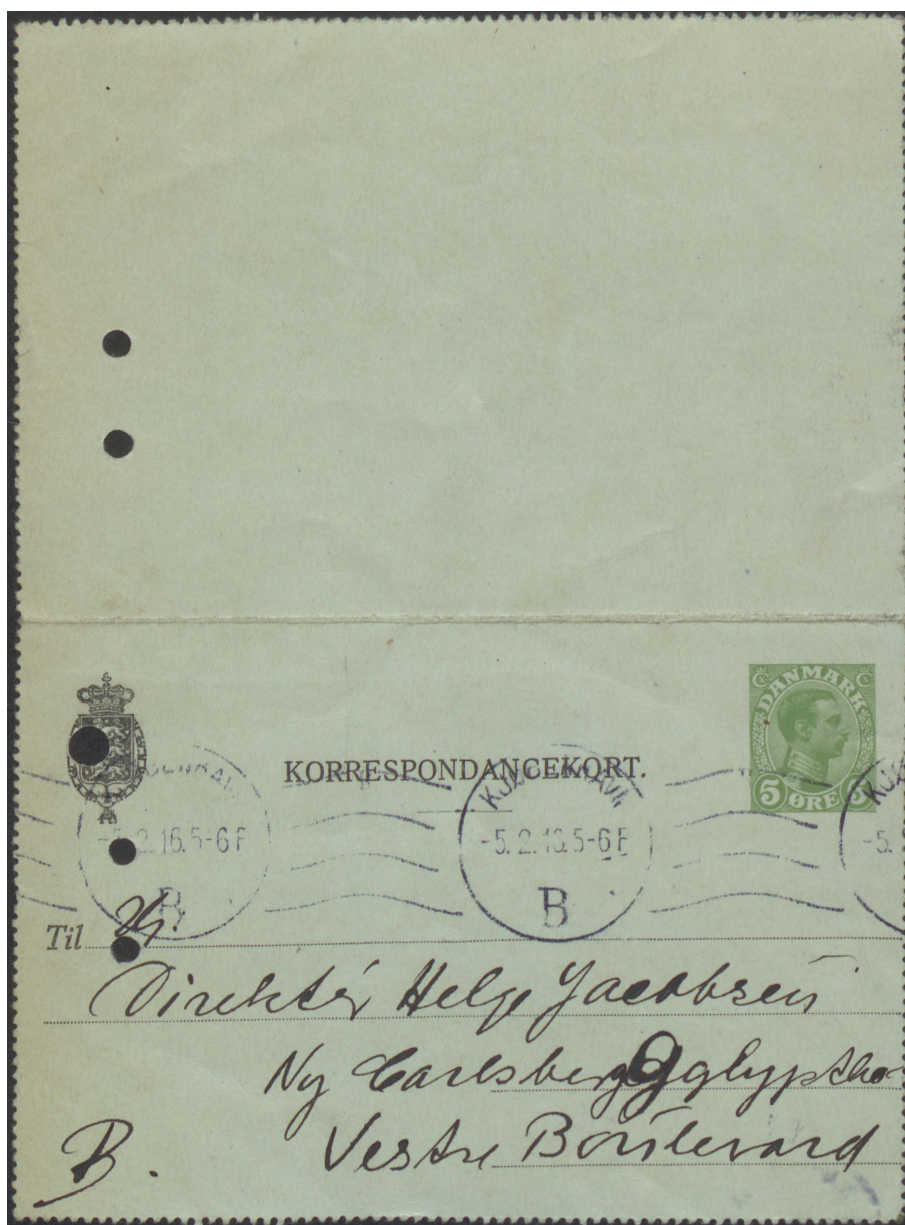 DANMARK
5 ØRE 5
KORRESPONDANCEKORT.
KJØBENHAVN
-5.2.16.5-6 F
B
KJØBENHAVN
-5.2.16.5-6 F
B
-5.
Til Hr.
Direktør Helge Jacobsen
Ny Carlsberg glyptho-
B. Vestre Boulevard